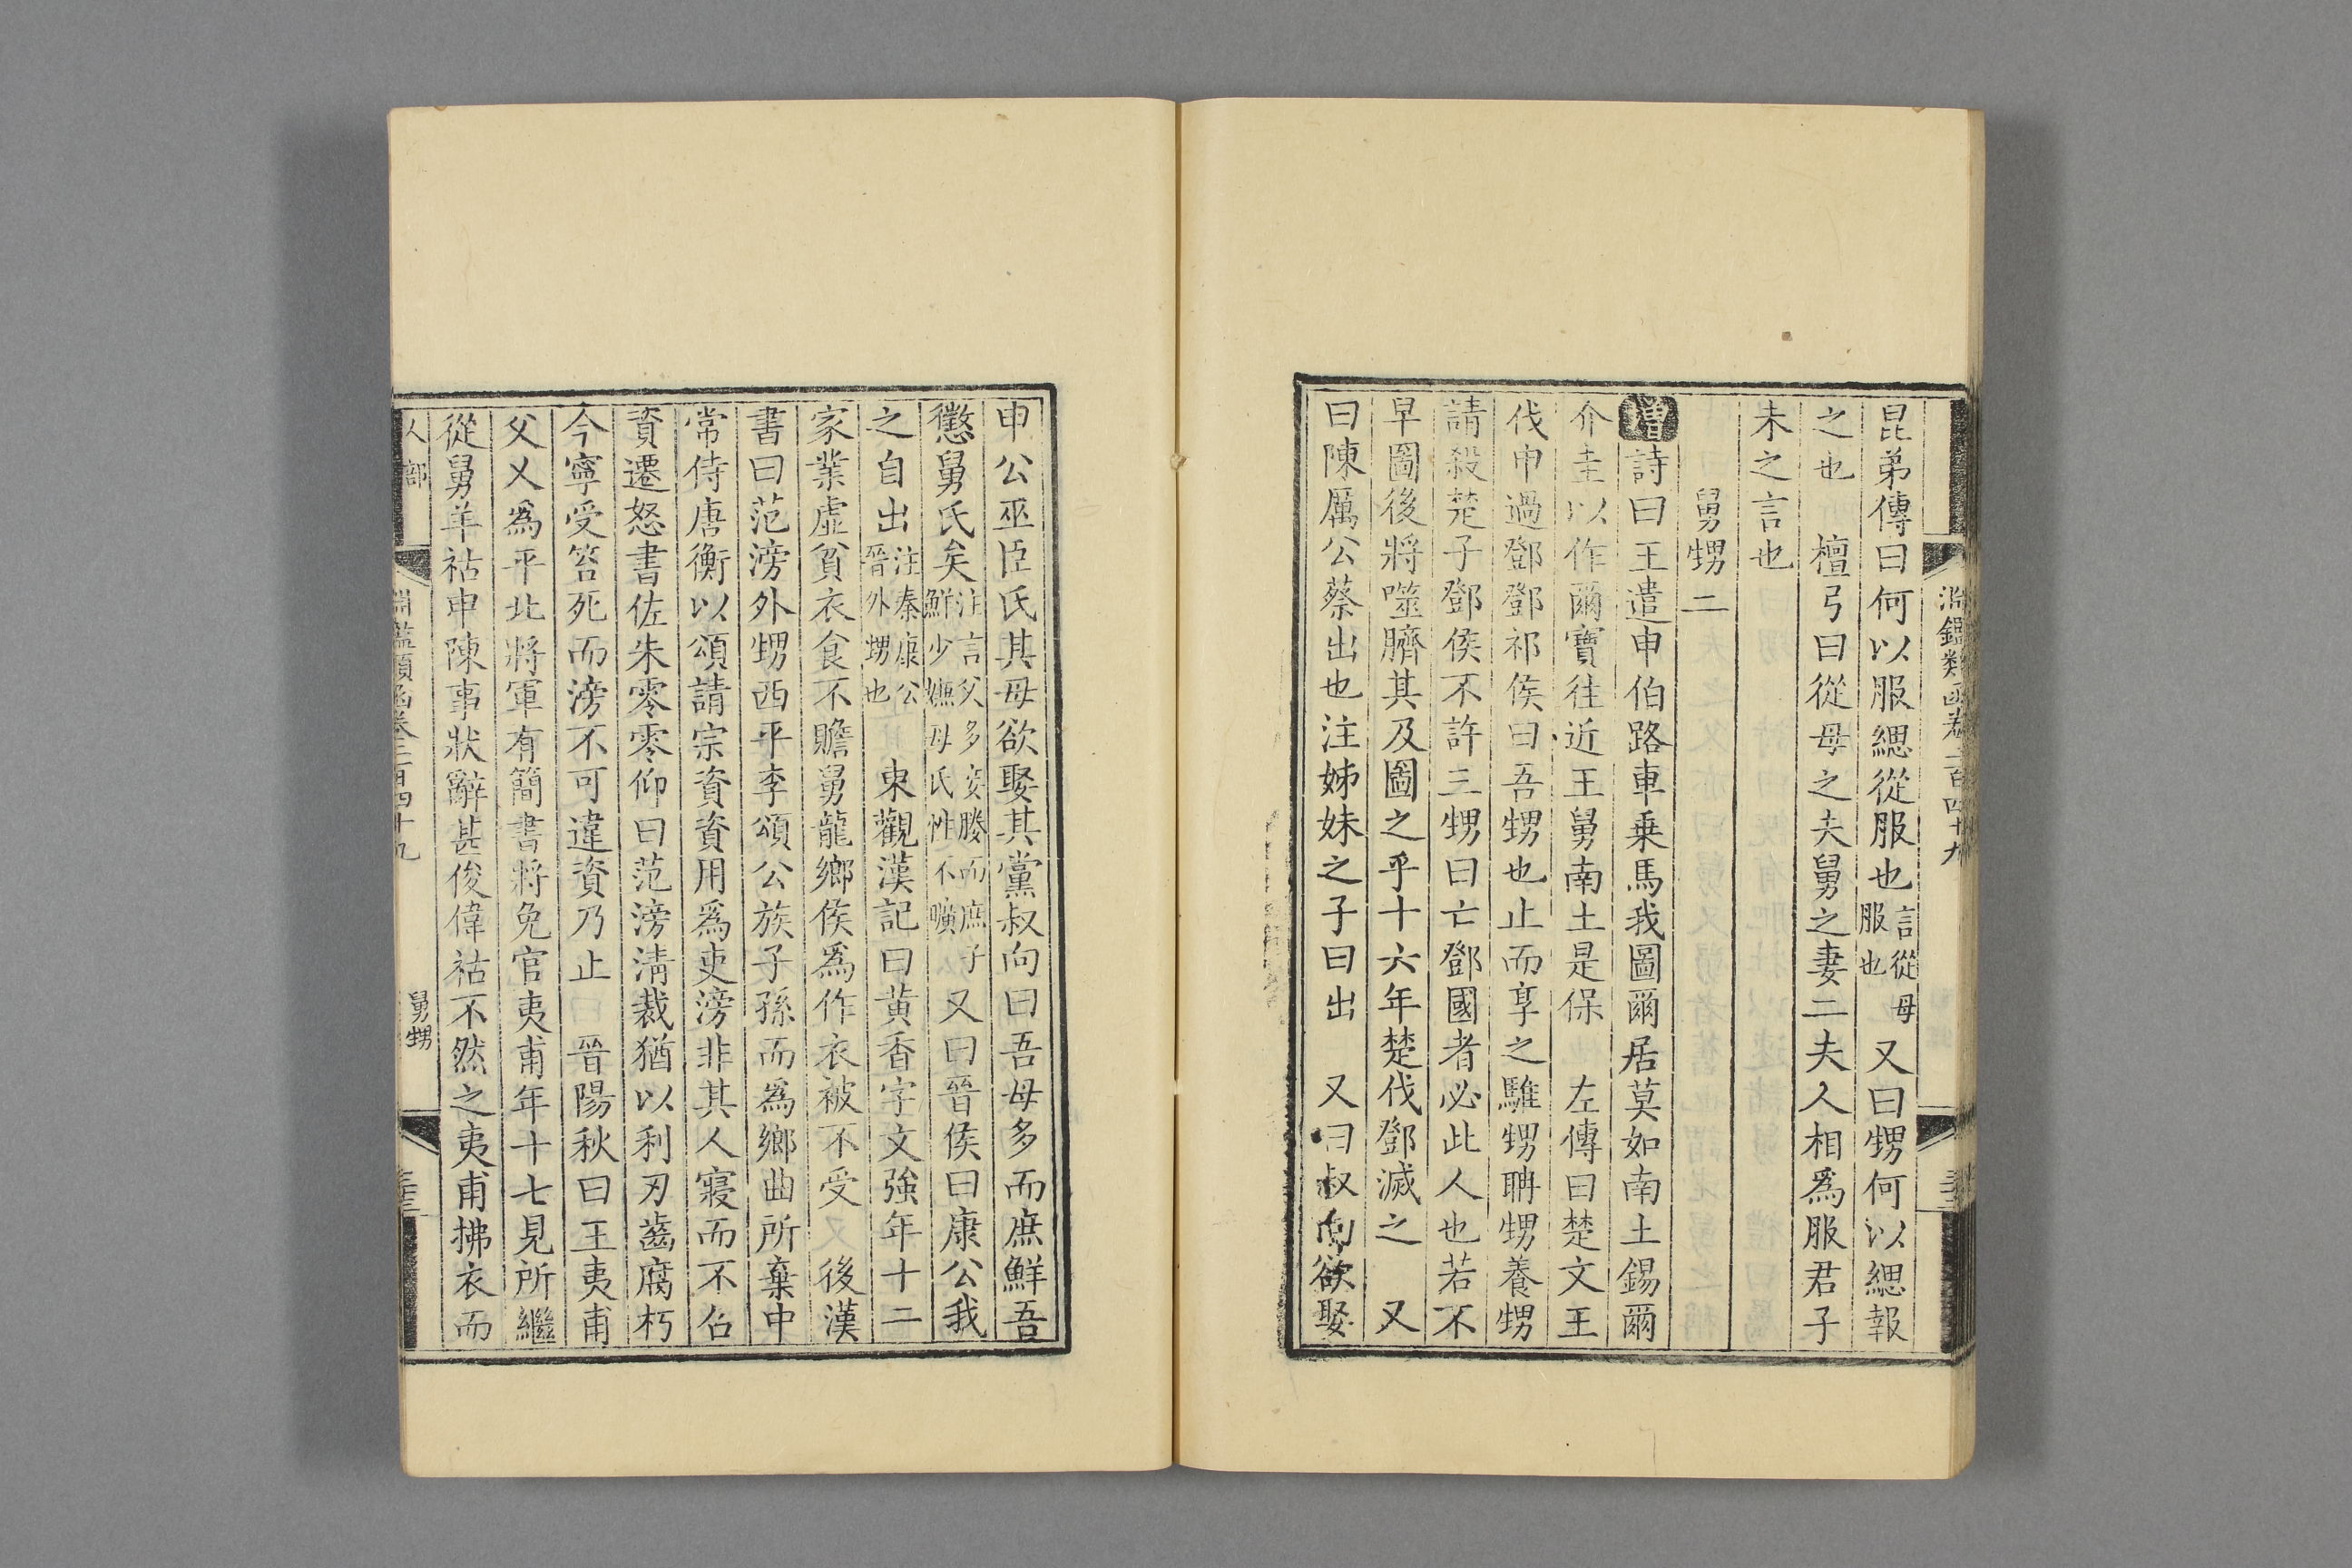 淵鑑類函卷二百四十九
昆弟傳曰何以服緦從服也言從母服也 又曰甥何以緦報
之也 檀弓曰從母之夫舅之妻二夫人相爲服君子
未之言也
舅甥二
增詩曰王遣申伯路車乗馬我圖爾居莫如南土錫爾
介圭以作爾寶往近王舅南土是保 左傳曰楚文王
伐申過鄧鄧祁侯曰吾甥也止而享之騅甥聃甥養甥
請殺楚子鄧侯不許三甥曰亡鄧國者必此人也若不
早圖後將噬臍其及圖之乎十六年楚伐鄧滅之 又
曰陳厲公蔡出也注姊妹之子曰出 又曰叔向欲娶
申公巫臣氏其母欲娶其黨叔向曰吾母多而庶鮮吾
懲舅氏矣注言父多妾媵而庶子鮮少嫌母氏性不曠 又曰晉侯曰康公我
之自出注秦康公晉外甥也 東觀漢記曰黄香字文強年十二
家業虛貧衣食不贍舅龍鄉侯爲作衣被不受 後漢
書曰范滂外甥西平李頌公族子孫而爲鄉曲所棄中
常侍唐衡以頌請宗資資用爲吏滂非其人寢而不召
資遷怒書佐朱零零仰曰范滂淸裁猶以利刃齒腐朽
今寧受笞死而滂不可違資乃止 晉陽秋曰王夷甫
父乂爲平北將軍有簡書將免官夷甫年十七見所繼
從舅羊祜申陳事狀辭甚俊偉祜不然之夷甫拂衣而
人部 淵鑑類函卷二百四十九 舅甥